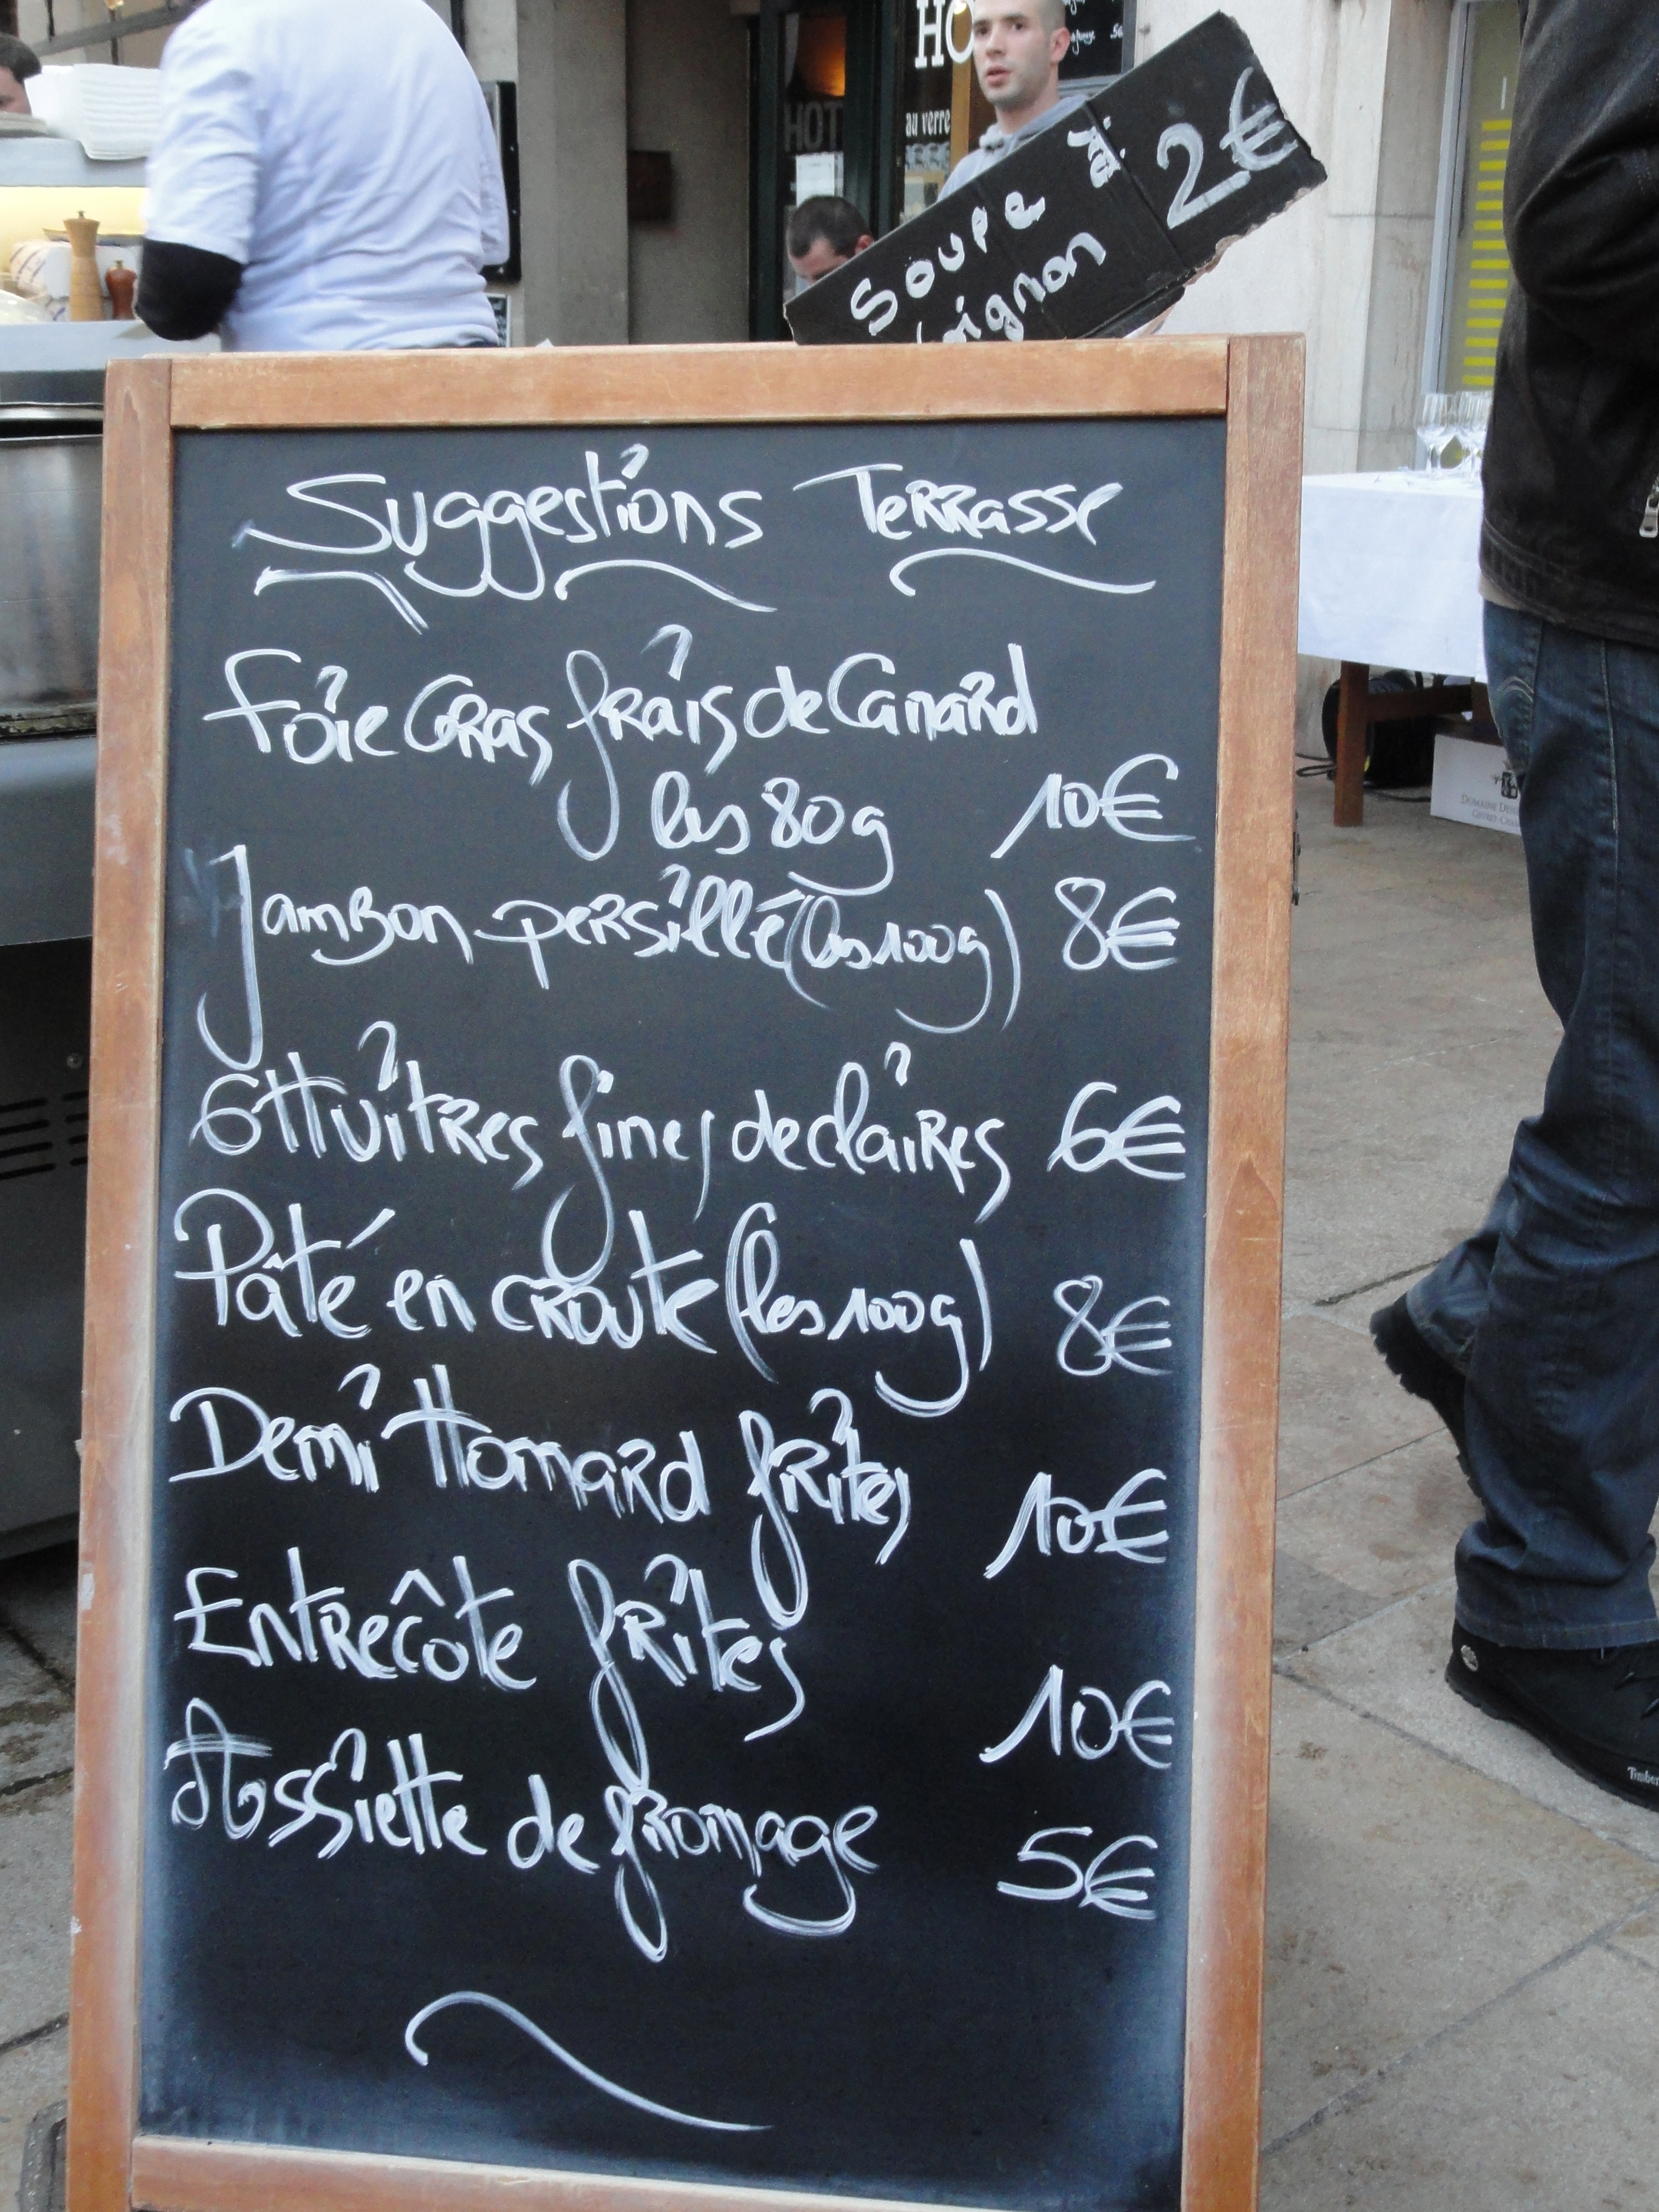 HO
HOT
au verre
Soupe à
l'oignon
2€
Suggestions Terrasse
Foie Gras frais de Canard
les 80g 10€
Jambon persillé (les 100g) 8€
6 Huîtres fines de claires 6€
Pâté en croute (les 100g) 8€
Demi Homard frites 10€
Entrecôte frites 10€
Assiette de fromage 5€
DOMAINE
Timber